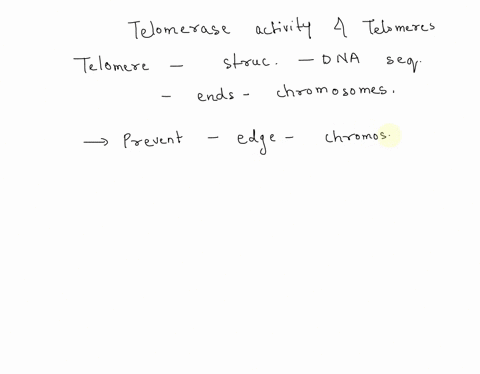 Telomerase activity & Telomeres
Telomere - struc. - DNA seq.
- ends - chromosomes.
→ Prevent - edge - chromos.